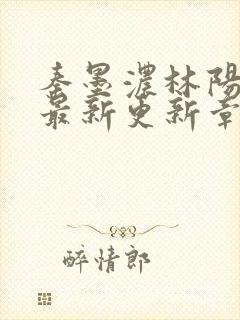 秦墨濃林陽
最新更新章
醉情郎